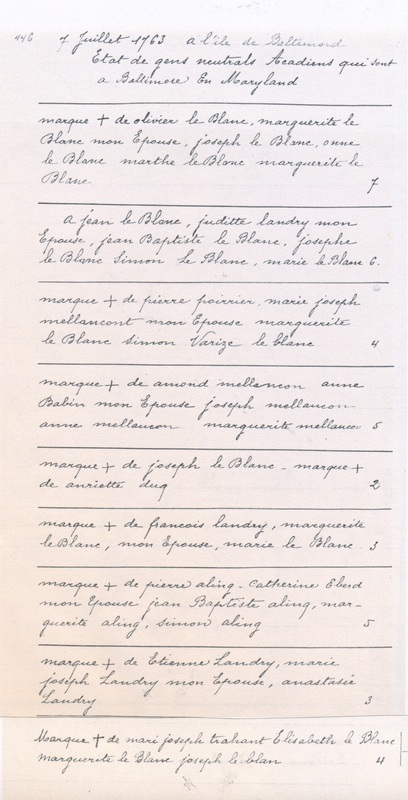 446 7 Juillet 1763 a l'ile de Baltimord
Etat de gens neutrals Acadiens qui sont
a Baltimore En Maryland
marque + de olivier le Blanc, marguerite le
Blanc mon Epouse, joseph le Blanc, anne
le Blanc marthe le Blanc marguerite le
Blanc 7
A jean le Blanc, juditte landry mon
Epouse, jean Baptiste le Blanc, josephe
le Blanc Simon le Blanc, marie le Blanc 6.
marque + de pierre poirrier, marie joseph
mellancont mon Epouse marguerite
le Blanc simon Varize le blanc 4
marque + de amond mellancon anne
Babin mon Epouse joseph mellancon
anne mellancon marguerite mellancon 5
marque + de joseph le Blanc - marque +
de anriette dug 2
marque + de francois landry, marguerite
le Blanc, mon Epouse, marie le Blanc 3
marque + de pierre aling - Catherine Eberd
mon Epouse jean Baptiste aling, mar-
guerite aling, simon aling 5
marque + de Etienne Landry, marie
joseph Landry mon Epouse, anastasie
Landry 3
Marque + de mari joseph trahant Elisabeth le Blanc
marguerite le Blanc joseph le blan 4